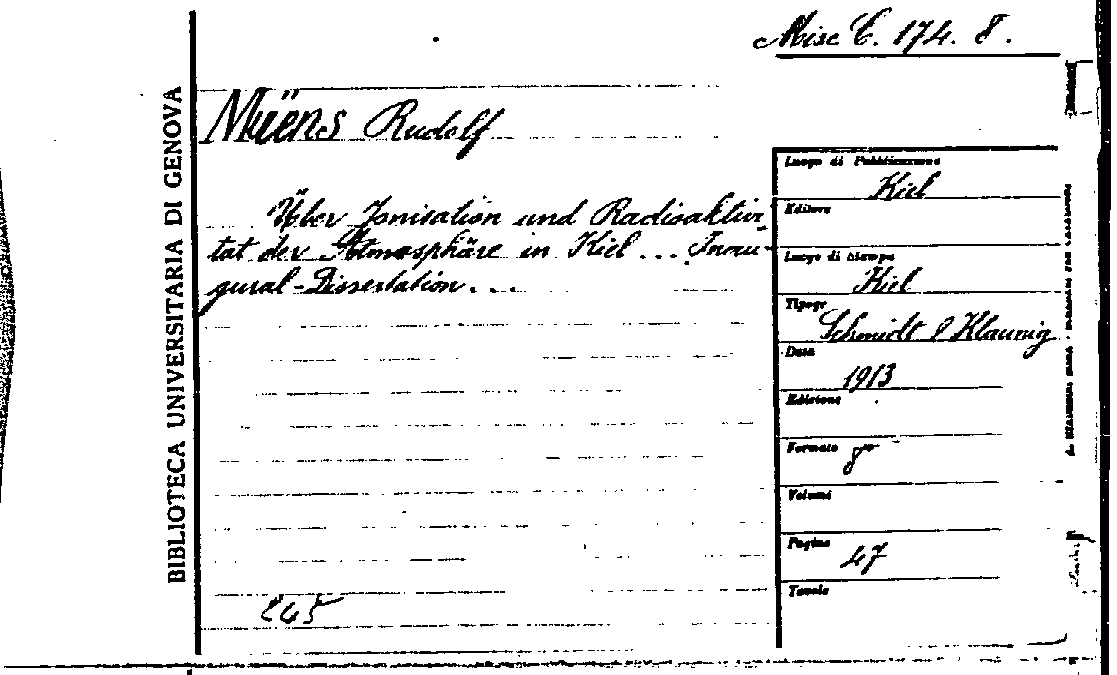 Misc C. 174. 8.
BIBLIOTECA UNIVERSITARIA DI GENOVA
Müens Rudolf
Über Jonisation und Radioaktivi-
tat der Atmosphäre in Kiel ... Inau-
gural-Dissertation...
Luogo di Pubblicazione
Kiel
Editore
Luogo di stampa
Kiel
Tipogr
Schmidt & Klaunig
Data
1913
Edizione
Formato 8°
Volumi
Pagine
47
Tavole